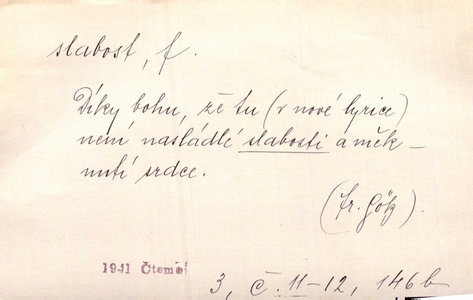 slabost, f.
Díky bohu, že tu (v nové lyrice)
není nasládlé slabosti a měk-
nutí srdce.
(Fr. Götz).
1941 Čteme
3, č. 11-12, 146b